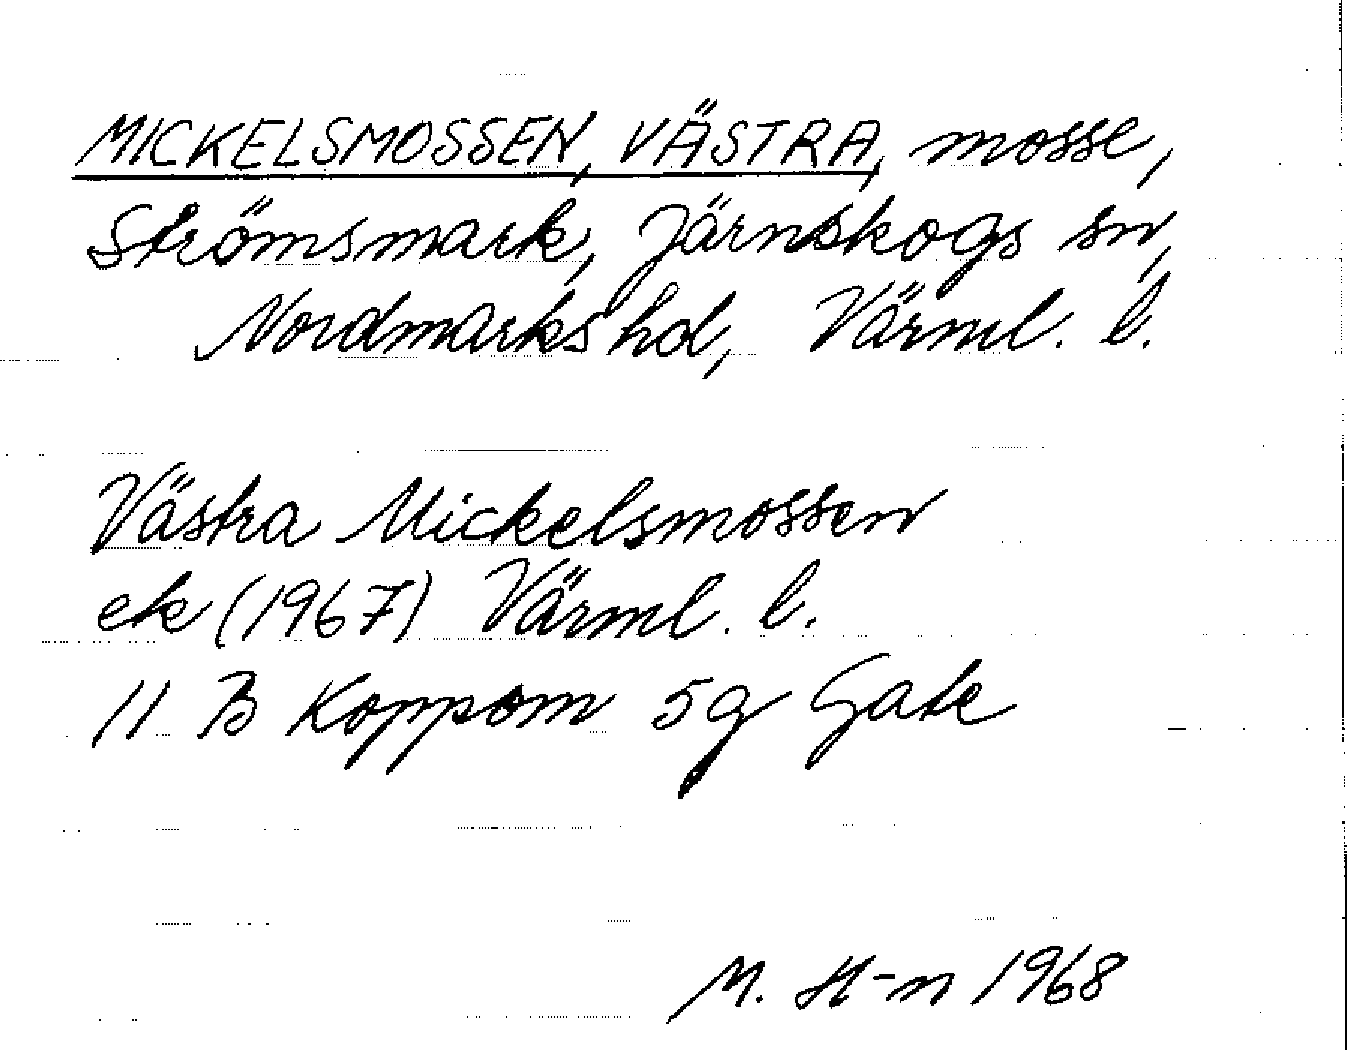 MICKELSMOSSEN, VÄSTRA, mosse,
Strömsmark, Järnskogs sn,
Nordmarks hd, Värml. l.
Västra Mickelsmossen
ek (1967) Värml. l.
11 B Koppom 5g Gate
M. H-n 1968